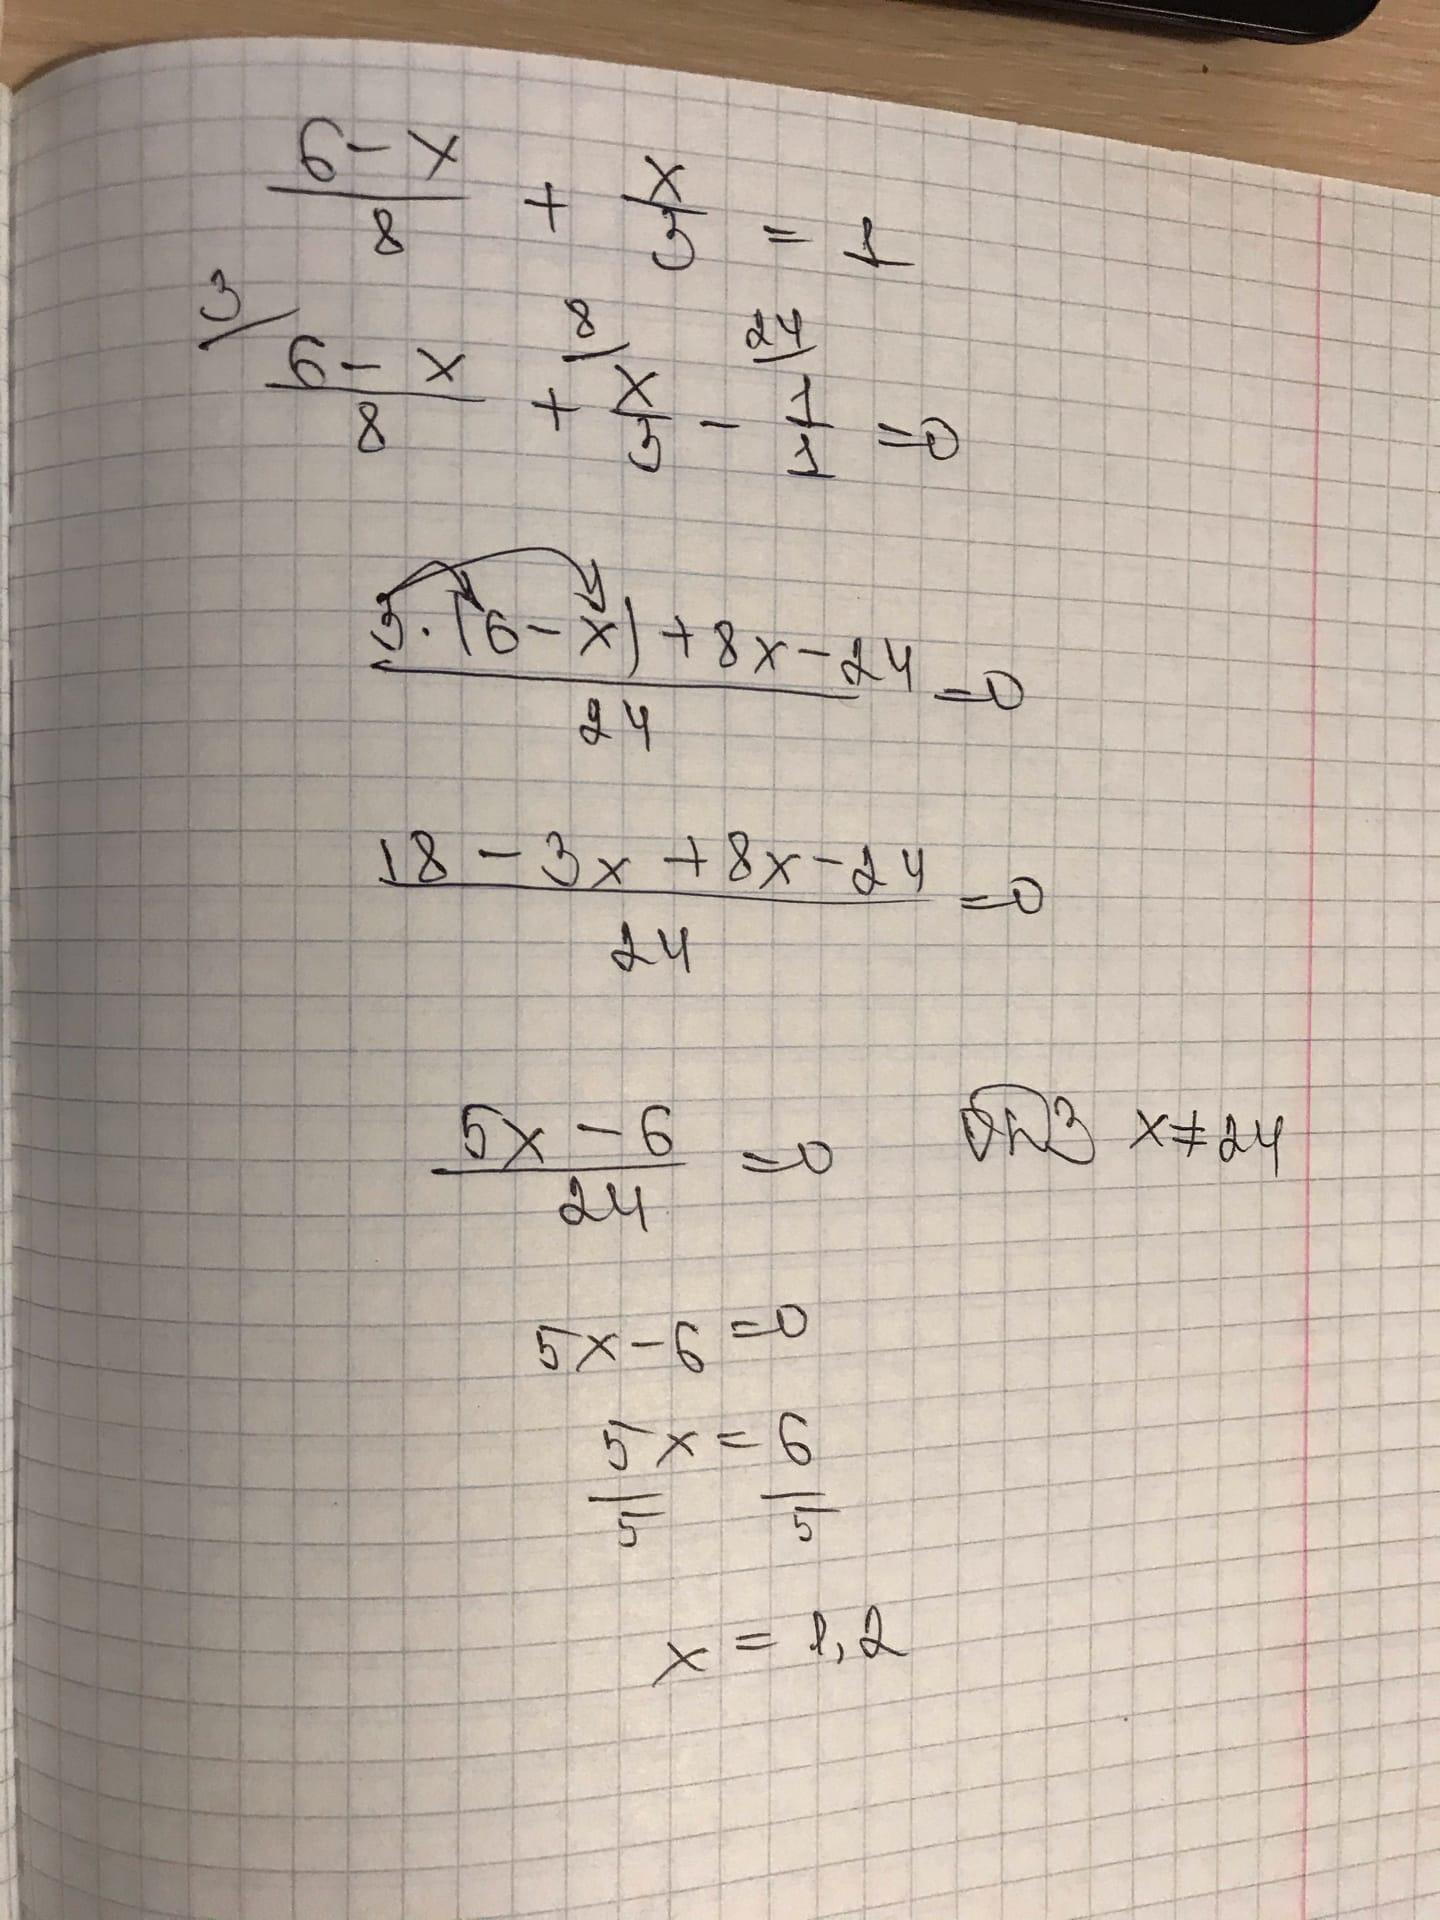 6 - x / 8 + x / 3 = 1
3/ 6 - x / 8 + 8/ x / 3 - 24/ 1 / 1 = 0
3 · (6 - x) + 8x - 24 / 24 = 0
18 - 3x + 8x - 24 / 24 = 0
5x - 6 / 24 = 0 ОДЗ x ≠ 24
5x - 6 = 0
5x / 5 = 6 / 5
x = 1,2